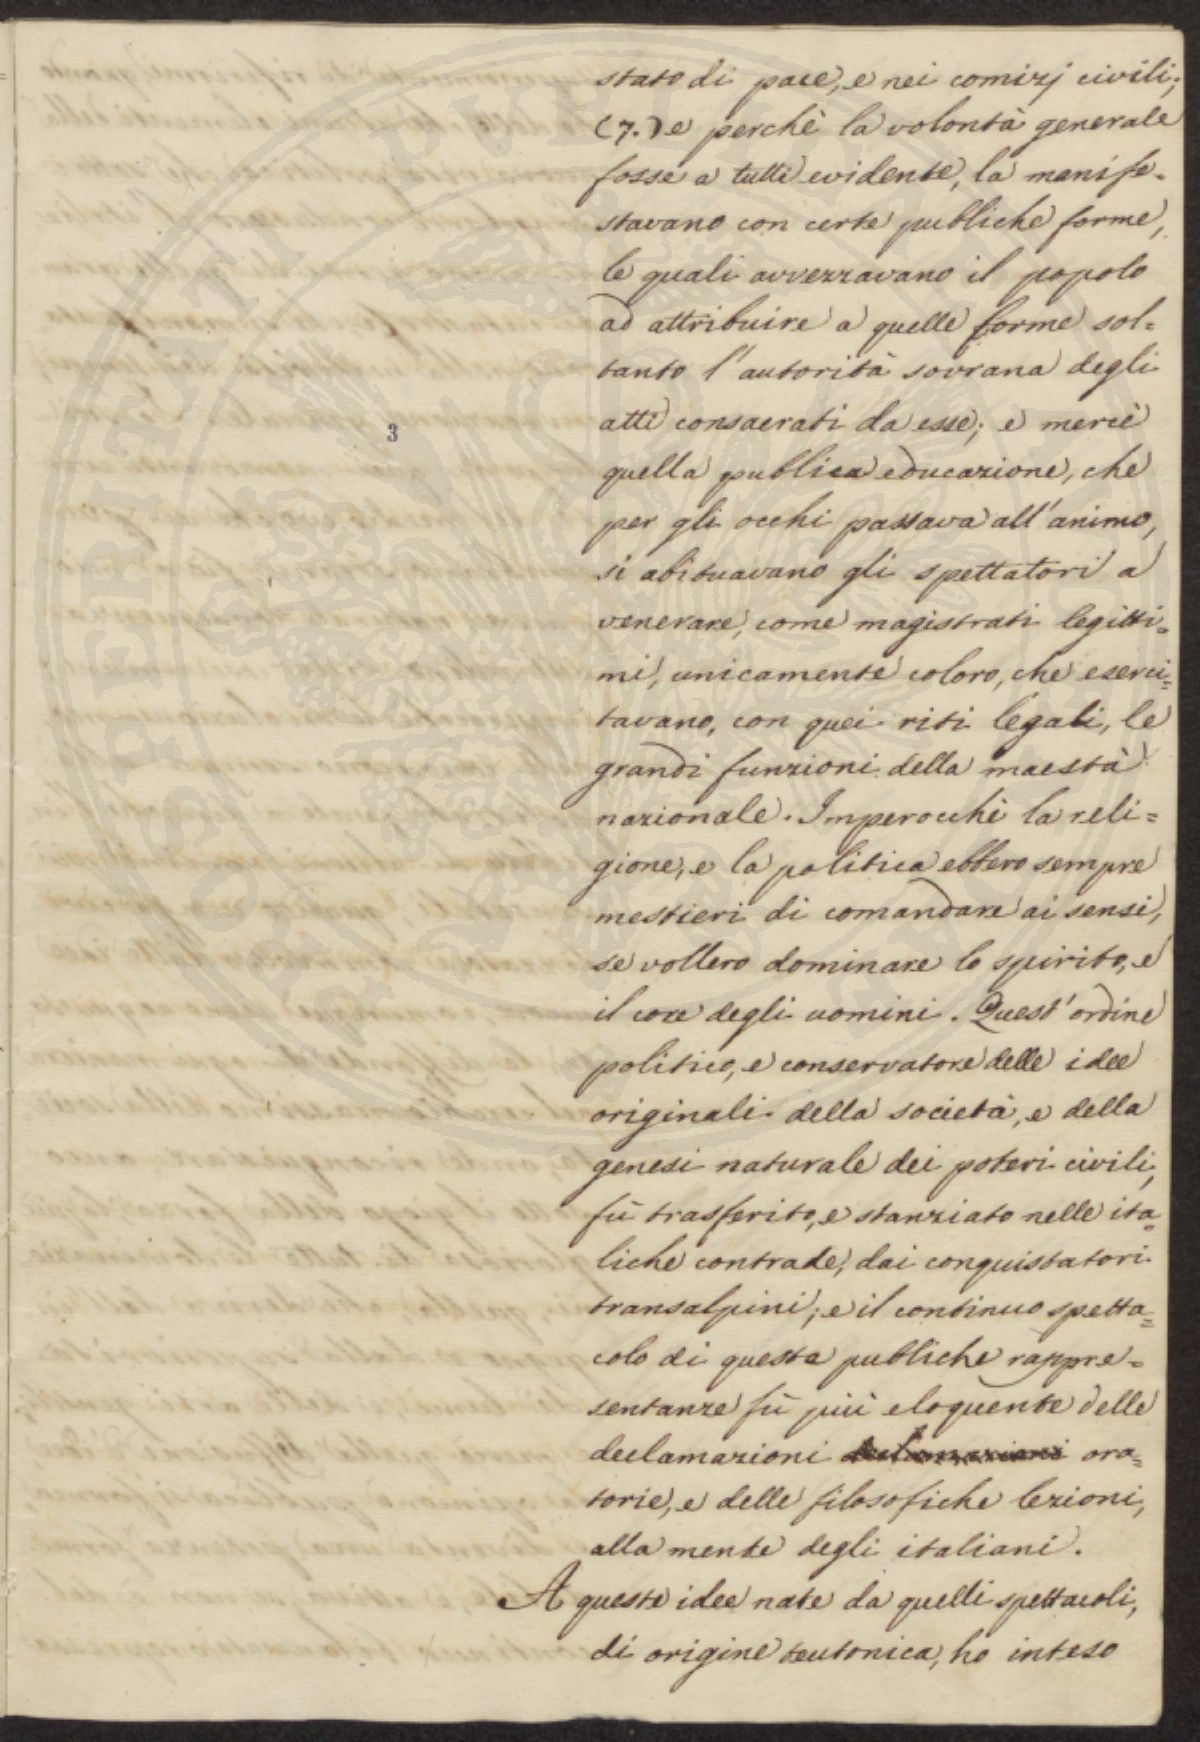 stato di pace, e nei comizj civili;
(7.) e perchè la volontà generale
fosse a tutti evidente, la manife=
stavano con certe publiche forme,
le quali avvezzavano il popolo
ad attribuire a quelle forme sol=
tanto l'autorità sovrana degli
atti consacrati da esse; e mercè
3
quella publica educazione, che
per gli occhi passava all'animo,
si abituavano gli spettatori a
venerare, come magistrati legitti=
mi, unicamente coloro, che eserci=
tavano, con quei riti legali, le
grandi funzioni della maestà
nazionale. Imperocchè la reli=
gione, e la politica ebbero sempre
mestieri di comandare ai sensi,
se vollero dominare lo spirito, e
il core degli uomini. Quest'ordine
politico, e conservatore delle idee
originali della società, e della
genesi naturale dei poteri civili,
fù trasferito, e stanziato nelle ita=
liche contrade, dai conquistatori
transalpini; e il continuo spetta=
colo di queste publiche rappre=
sentanze fù più eloquente delle
declamazioni declamazioni ora=
torie, e delle filosofiche lezioni,
alla mente degli italiani.
A queste idee nate da quelli spettacoli,
di origine teutonica, ho inteso